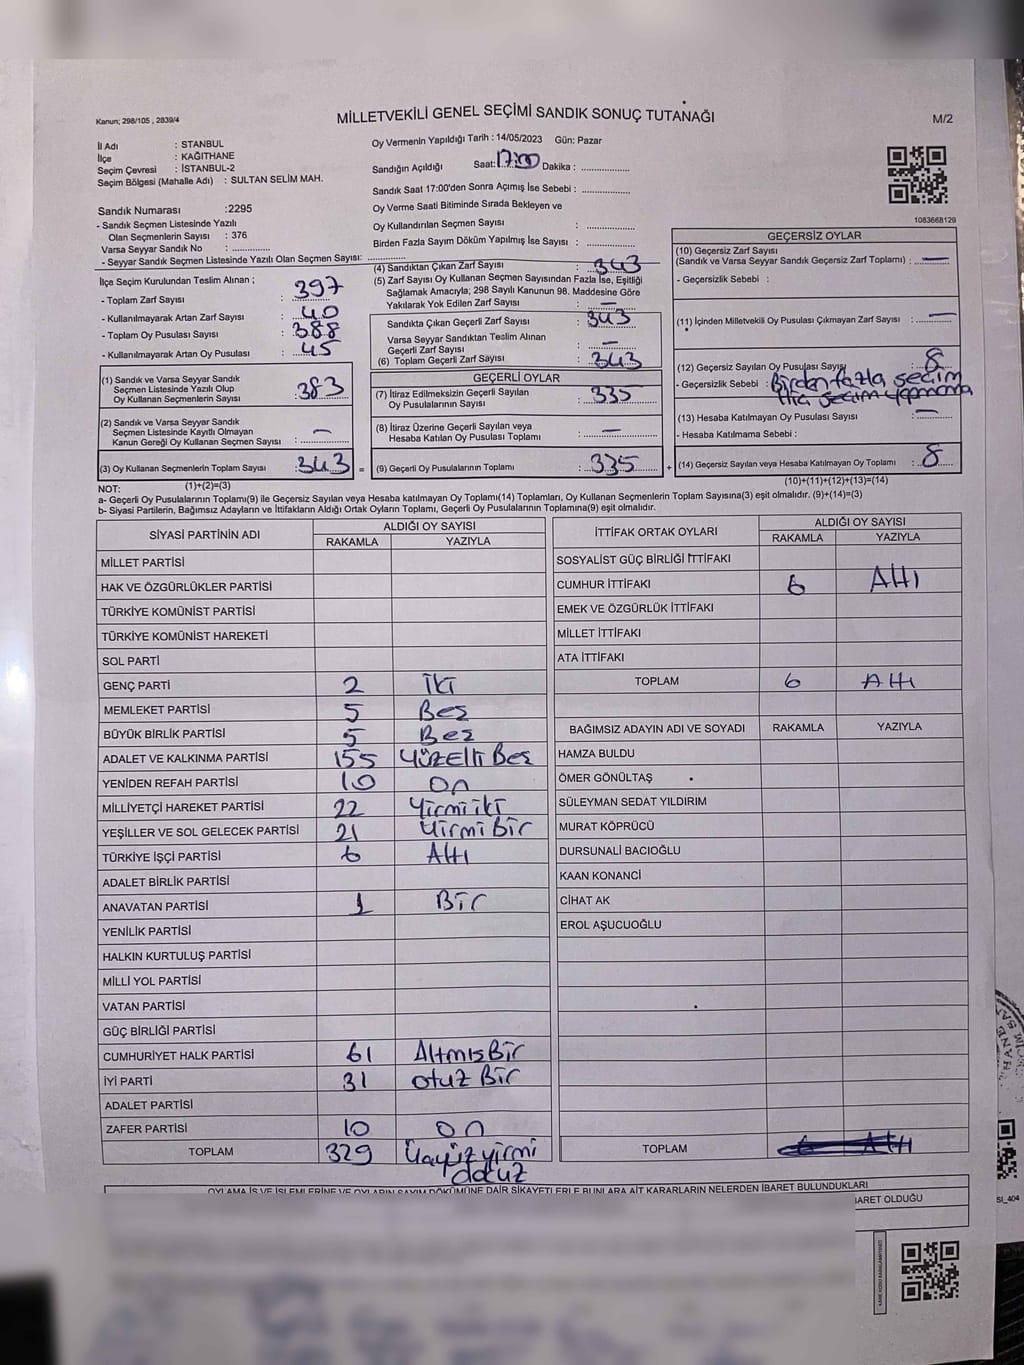 Kanun; 298/105 , 2839/4
MİLLETVEKİLİ GENEL SEÇİMİ SANDIK SONUÇ TUTANAĞI
M/2
İl Adı : STANBUL
İlçe : KAĞITHANE
Seçim Çevresi : İSTANBUL-2
Seçim Bölgesi (Mahalle Adı) : SULTAN SELİM MAH.
Oy Vermenin Yapıldığı Tarih : 14/05/2023 Gün: Pazar
Sandığın Açıldığı Saat: 17:00 Dakika : ..................
Sandık Saat 17:00'den Sonra Açımış İse Sebebi : ..................
Oy Verme Saati Bitiminde Sırada Bekleyen ve
Oy Kullandırılan Seçmen Sayısı : ..................
Birden Fazla Sayım Döküm Yapılmış İse Sayısı : ..................
1083668129
Sandık Numarası :2295
- Sandık Seçmen Listesinde Yazılı
Olan Seçmenlerin Sayısı : 376
Varsa Seyyar Sandık No : ..............
- Seyyar Sandık Seçmen Listesinde Yazılı Olan Seçmen Sayısı: ..............
İlçe Seçim Kurulundan Teslim Alınan ;
- Toplam Zarf Sayısı : 397
- Kullanılmayarak Artan Zarf Sayısı : 40
- Toplam Oy Pusulası Sayısı : 388
- Kullanılmayarak Artan Oy Pusulası : 45
(1) Sandık ve Varsa Seyyar Sandık
Seçmen Listesinde Yazılı Olup
Oy Kullanan Seçmenlerin Sayısı : 383
(2) Sandık ve Varsa Seyyar Sandık
Seçmen Listesinde Kayıtlı Olmayan
Kanun Gereği Oy Kullanan Seçmen Sayısı : —
(3) Oy Kullanan Seçmenlerin Toplam Sayısı : 343 =
(1)+(2)=(3)
(4) Sandıktan Çıkan Zarf Sayısı : 343
(5) Zarf Sayısı Oy Kullanan Seçmen Sayısından Fazla İse, Eşitliği
Sağlamak Amacıyla; 298 Sayılı Kanunun 98. Maddesine Göre
Yakılarak Yok Edilen Zarf Sayısı : —
Sandıkta Çıkan Geçerli Zarf Sayısı : 343
Varsa Seyyar Sandıktan Teslim Alınan
Geçerli Zarf Sayısı : —
(6) Toplam Geçerli Zarf Sayısı : 343
GEÇERLİ OYLAR
(7) İtiraz Edilmeksizin Geçerli Sayılan
Oy Pusulalarının Sayısı : 335
(8) İtiraz Üzerine Geçerli Sayılan veya
Hesaba Katılan Oy Pusulası Toplamı : —
(9) Geçerli Oy Pusulalarının Toplamı : 335 +
GEÇERSİZ OYLAR
(10) Geçersiz Zarf Sayısı
(Sandık ve Varsa Seyyar Sandık Geçersiz Zarf Toplamı) : —
- Geçersizlik Sebebi :
(11) İçinden Milletvekili Oy Pusulası Çıkmayan Zarf Sayısı : —
(12) Geçersiz Sayılan Oy Pusulası Sayısı : 8
- Geçersizlik Sebebi : Birden fazla seçim
Hiç seçim yapmama
(13) Hesaba Katılmayan Oy Pusulası Sayısı : —
- Hesaba Katılmama Sebebi :
(14) Geçersiz Sayılan veya Hesaba Katılmayan Oy Toplamı : 8
(10)+(11)+(12)+(13)=(14)
NOT:
a- Geçerli Oy Pusulalarının Toplamı(9) ile Geçersiz Sayılan veya Hesaba katılmayan Oy Toplamı(14) Toplamları, Oy Kullanan Seçmenlerin Toplam Sayısına(3) eşit olmalıdır. (9)+(14)=(3)
b- Siyasi Partilerin, Bağımsız Adayların ve İttifakların Aldığı Ortak Oyların Toplamı, Geçerli Oy Pusulalarının Toplamına(9) eşit olmalıdır.
SİYASİ PARTİNİN ADI
ALDIĞI OY SAYISI
RAKAMLA YAZIYLA
MİLLET PARTİSİ
HAK VE ÖZGÜRLÜKLER PARTİSİ
TÜRKİYE KOMÜNİST PARTİSİ
TÜRKİYE KOMÜNİST HAREKETİ
SOL PARTİ
GENÇ PARTİ 2 İki
MEMLEKET PARTİSİ 5 Beş
BÜYÜK BİRLİK PARTİSİ 5 Beş
ADALET VE KALKINMA PARTİSİ 155 Yüzelli Beş
YENİDEN REFAH PARTİSİ 10 on
MİLLİYETÇİ HAREKET PARTİSİ 22 Yirmi iki
YEŞİLLER VE SOL GELECEK PARTİSİ 21 Yirmi Bir
TÜRKİYE İŞÇİ PARTİSİ 6 Altı
ADALET BİRLİK PARTİSİ
ANAVATAN PARTİSİ 1 Bir
YENİLİK PARTİSİ
HALKIN KURTULUŞ PARTİSİ
MİLLİ YOL PARTİSİ
VATAN PARTİSİ
GÜÇ BİRLİĞİ PARTİSİ
CUMHURİYET HALK PARTİSİ 61 Altmış Bir
İYİ PARTİ 31 otuz Bir
ADALET PARTİSİ
ZAFER PARTİSİ 10 on
TOPLAM 329 Üçyüz yirmi
dokuz
İTTİFAK ORTAK OYLARI
ALDIĞI OY SAYISI
RAKAMLA YAZIYLA
SOSYALİST GÜÇ BİRLİĞİ İTTİFAKI
CUMHUR İTTİFAKI 6 Altı
EMEK VE ÖZGÜRLÜK İTTİFAKI
MİLLET İTTİFAKI
ATA İTTİFAKI
TOPLAM 6 Altı
BAĞIMSIZ ADAYIN ADI VE SOYADI RAKAMLA YAZIYLA
HAMZA BULDU
ÖMER GÖNÜLTAŞ
SÜLEYMAN SEDAT YILDIRIM
MURAT KÖPRÜCÜ
DURSUNALİ BACIOĞLU
KAAN KONANCİ
CİHAT AK
EROL AŞUCUOĞLU
TOPLAM 6 Altı
OYLAMA İŞ VE İŞLEMLERİNE VE OYLARIN SAYIM DÖKÜMÜNE DAİR ŞİKAYETLERLE BUNLARA AİT KARARLARIN NELERDEN İBARET BULUNDUKLARI
İBARET OLDUĞU